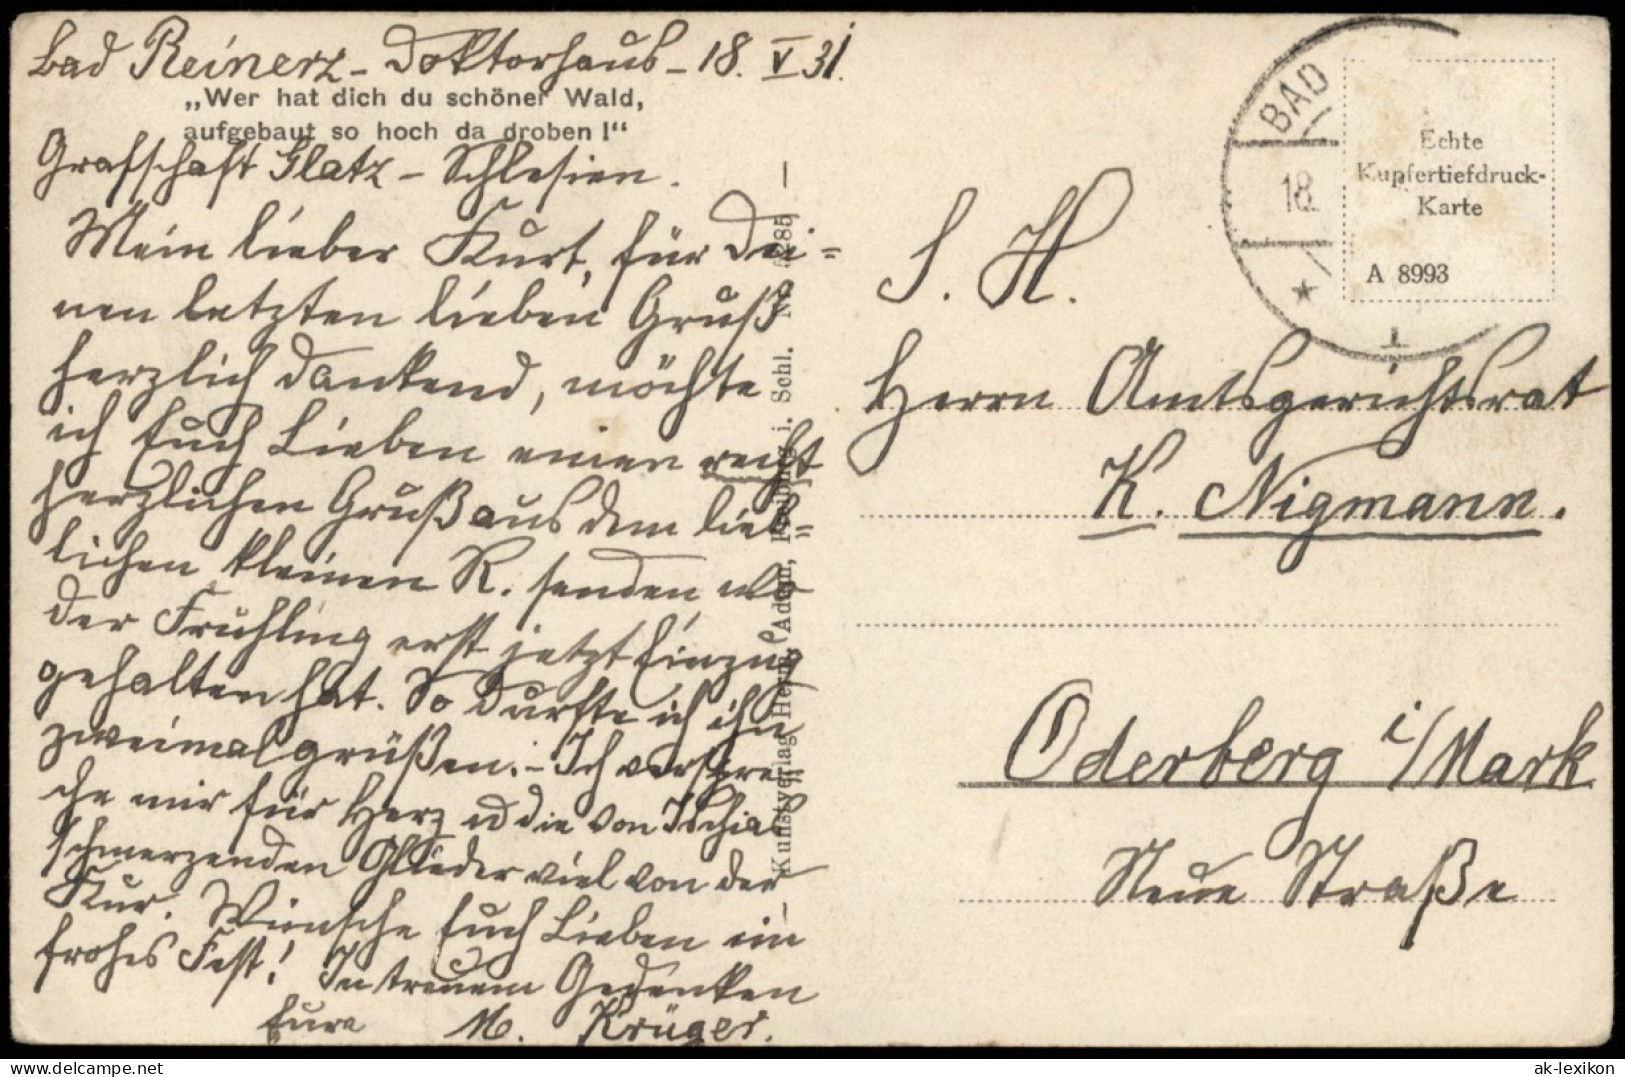 Bad Reinerz – Doktorhaus – 18. V 31.
„Wer hat dich du schöner Wald,
aufgebaut so hoch da droben!“
Grafschaft Glatz – Schlesien.
Mein lieber Kurt, für Dei=
nen letzten lieben Gruß
herzlich dankend, möchte
ich Euch Lieben einen recht
herzlichen Gruß aus dem lieb=
lichen kleinen R. senden wo
der Frühling erst jetzt Einzug
gehalten hat. So durfte ich ihn
zweimal grüßen. – Ich verspre=
che mir für Herz u die von Ischias
schmerzenden Glieder viel von der
Kur. Wünsche Euch Lieben ein
frohes Fest! In treuem Gedenken
Eure M. Krüger.
Kunstverlag Herm. Adam, i. Schl.
BAD
18.
Echte
Kupfertiefdruck-
Karte
A 8993
S. H.
Herrn Amtsgerichtsrat
K. Nigmann.
Oderberg i/Mark
Neue Straße
ak-lexikon